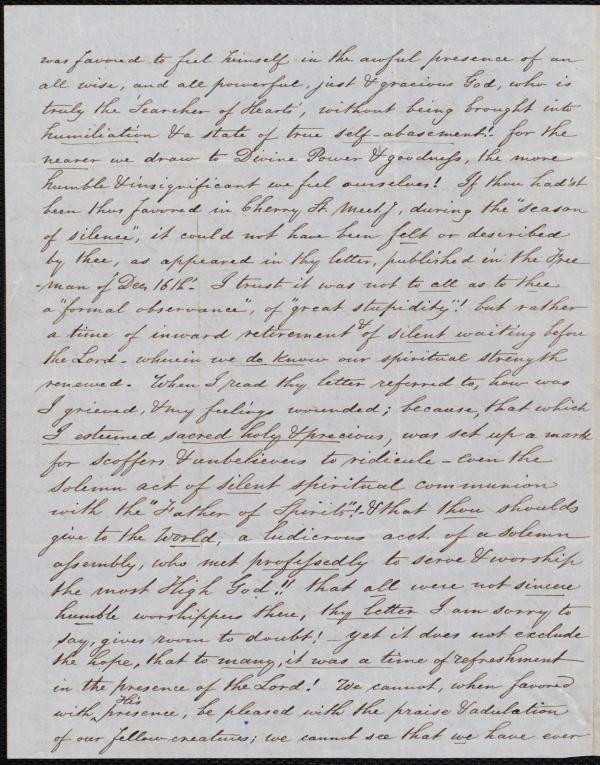 was favored to feel himself in the awful presence of an
all wise, and all powerful, just & gracious God, who is
truly the 'Searcher of Hearts', without being brought into
humiliation & a state of true self-abasement! for the
nearer we draw to Divine Power & goodness, the more
humble & insignificant we feel ourselves! If thou had'st
been thus favored in Cherry St. Meetg, during the "season
of silence", it could not have been felt or described
by thee, as appeared in thy letter, published in the Free
-man of Dec, 16th! I trust it was not to all as to thee
a "formal observance", of "great stupidity"! but rather
a time of inward retirement & of silent waiting before
the Lord - wherein we do know our spiritual strength
renewed. When I read thy letter referred to, how was
I grieved, & my feelings wounded; because, that which
I esteemed sacred holy & precious, was set up a mark
for scoffers & unbelievers to ridicule - even the
solemn act of silent spiritual communion
with the "Father of Spirits"! & that thou shoulds
give to the World, a ludicrous acct. of a solemn
assembly, who met professedly to serve & worship
the most High God!! that all were not sincere
humble worshippers there, thy letter I am sorry to
say, gives room to doubt! - yet it does not exclude
the hope, that to many, it was a time of refreshment
in the presence of the Lord! We cannot, when favored
with His presence, be pleased with the praise & adulation
of our fellow-creatures; we cannot see that we have ever